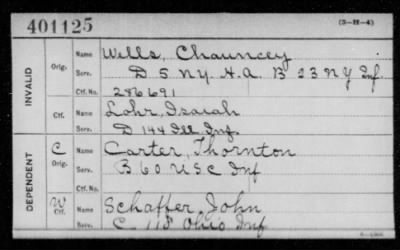 401125
(3-H-4)
INVALID
Orig.
Name
Wills, Chauncey
Serv.
D 5 N.Y. H.A. B 23 N Y Inf.
Ctf. No.
286691
Ctf.
Name
Lohr, Isaiah
Serv.
D 144 Ill Inf.
DEPENDENT
C
Orig.
Name
Carter, Thornton
Serv.
B 60 U S C Inf
Ctf. No.
W
Ctf.
Name
Schaffer, John
Serv.
C. 118 Ohio Inf